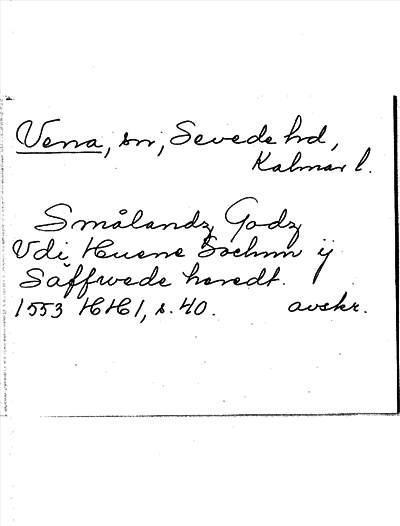 Vena, sn, Sevede hd,
Kalmar l.
Smålandz Godz
Vdi Huene Sochnn ij
Säffwede heredt.
1553 HH1, s. 40. avskr.